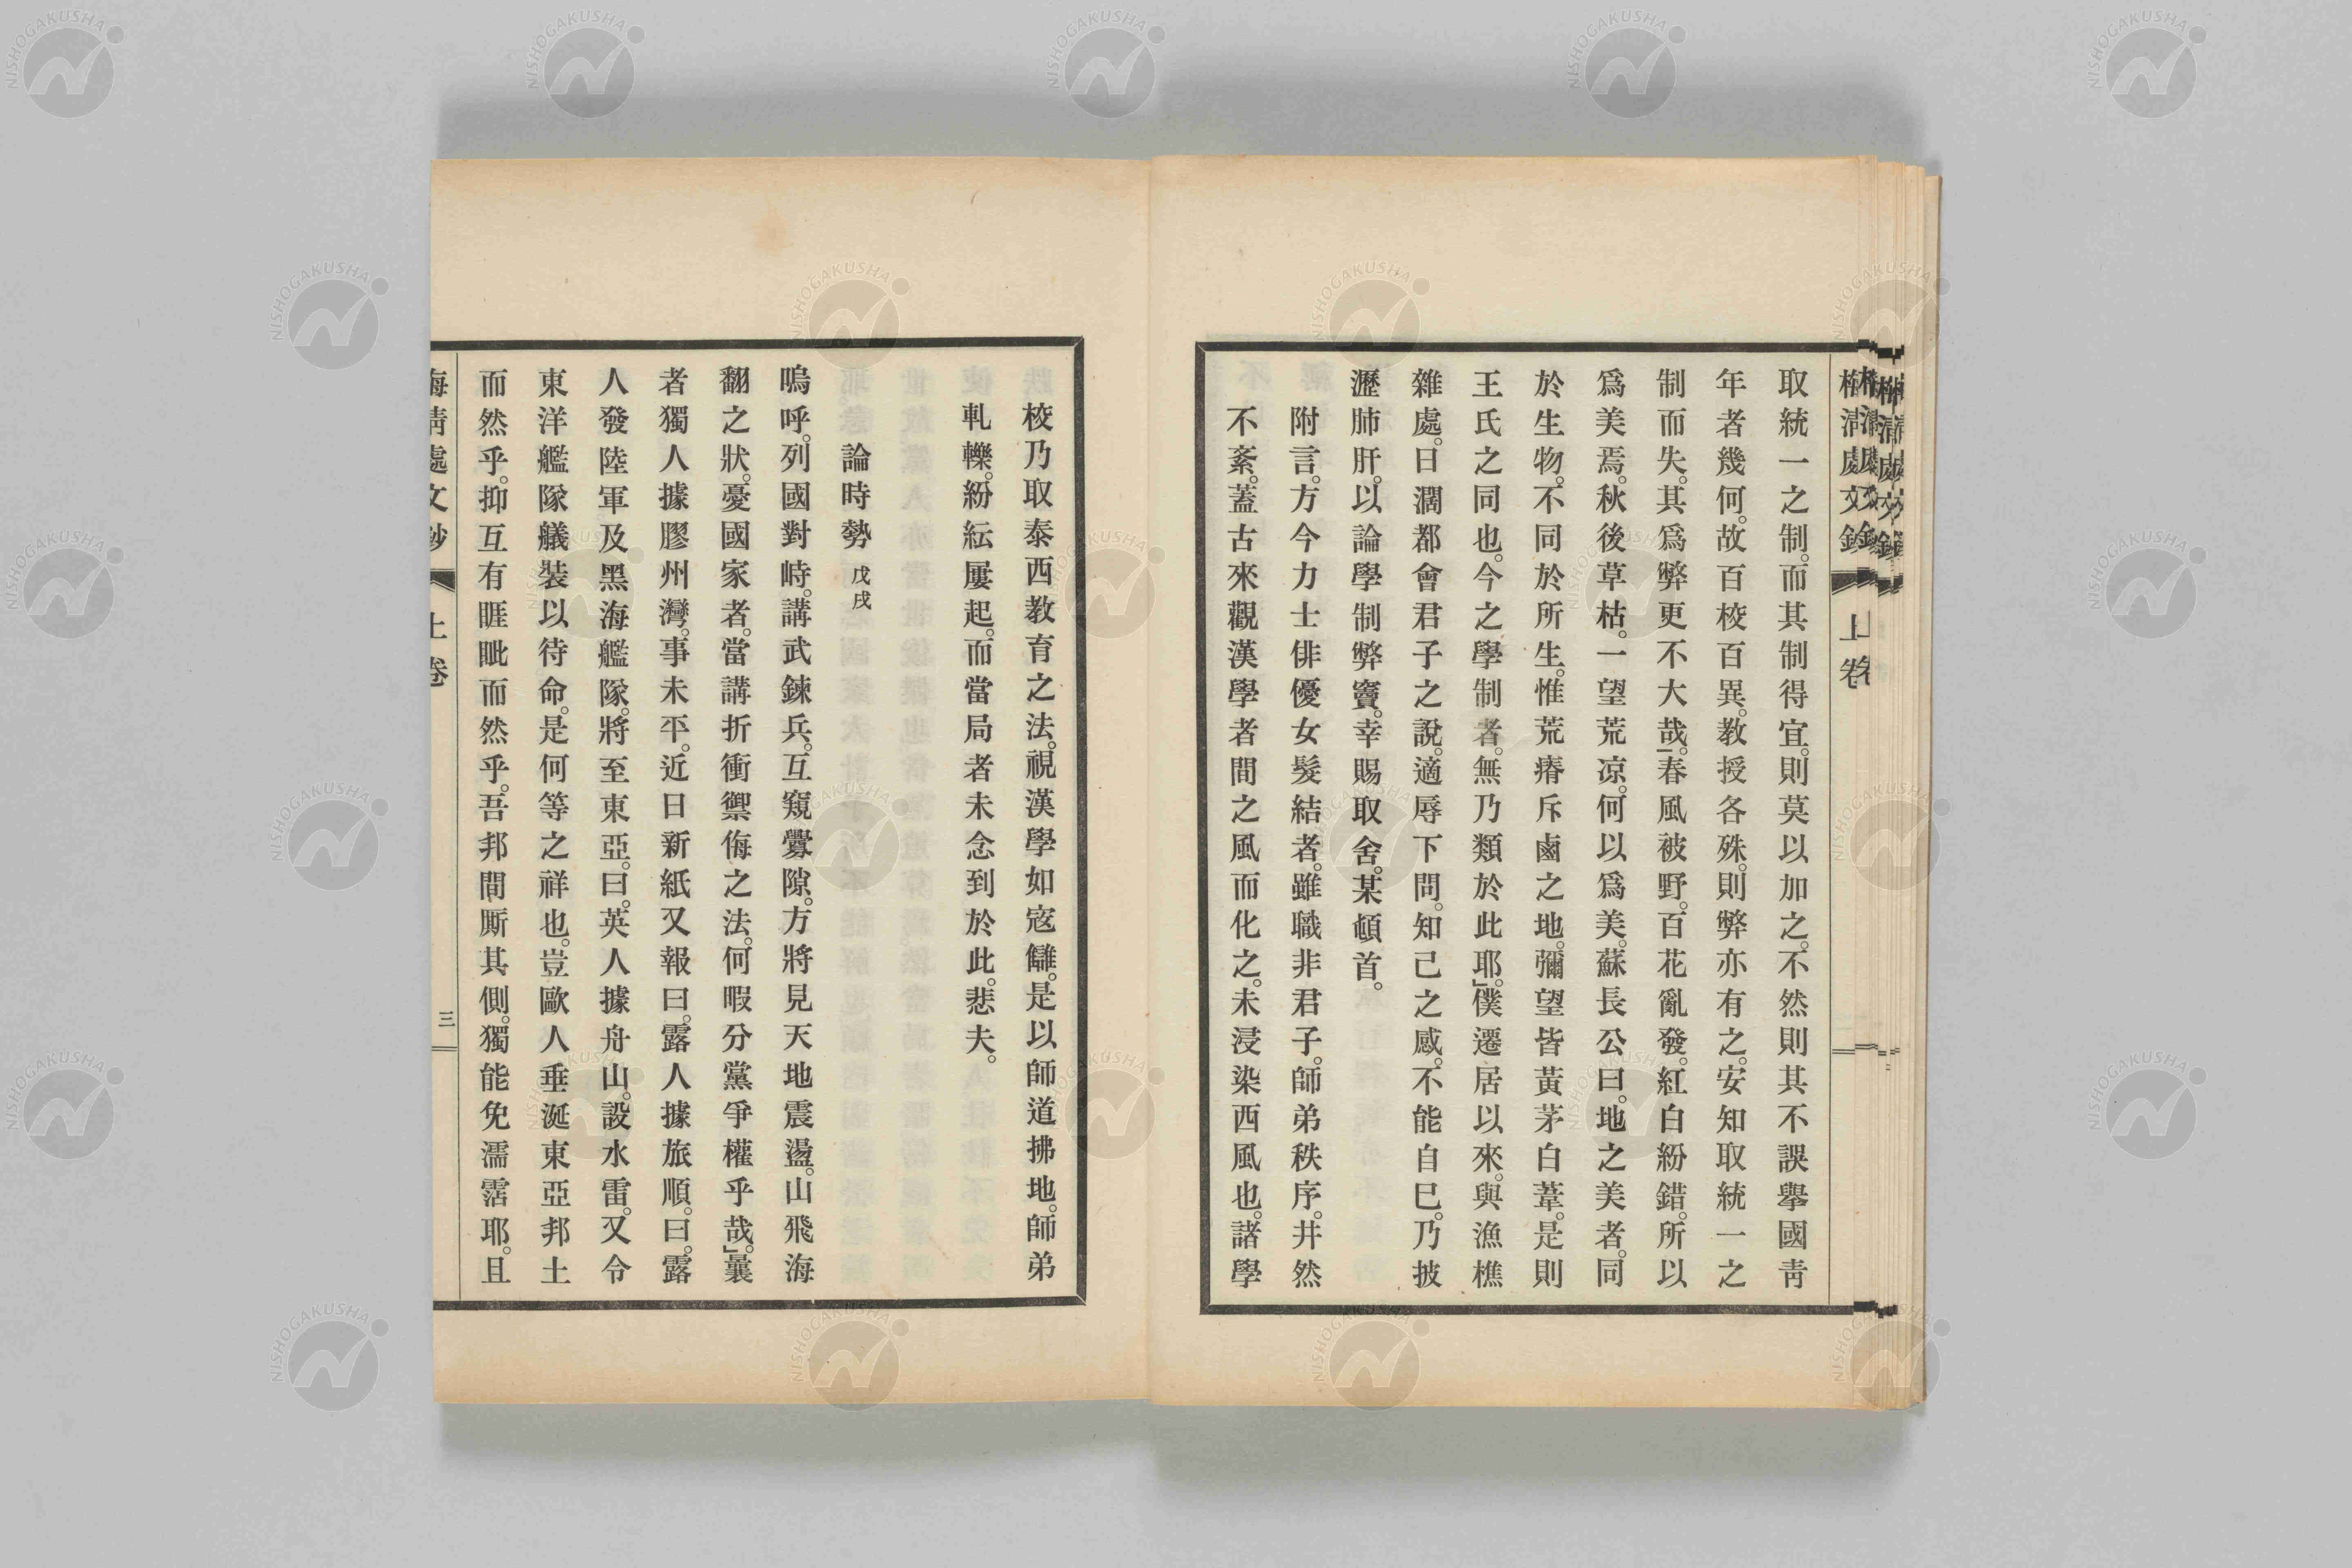 取統一之制。而其制得宜。則莫以加之。不然則其不誤擧國靑
年者幾何。故百校百異。敎授各殊。則弊亦有之。安知取統一之
制而失。其爲弊更不大哉。」春風被野。百花亂發。紅白紛錯。所以
爲美焉。秋後草枯。一望荒凉。何以爲美。蘇長公曰。地之美者。同
於生物。不同於所生。惟荒瘠斥鹵之地。彌望皆黃茅白葦。是則
王氏之同也。今之學制者。無乃類於此耶。」僕遷居以來。與漁樵
雜處。日濶都會君子之說。適辱下問。知己之感。不能自已。乃披
瀝肺肝。以論學制弊竇。幸賜取舍。某頓首。
附言。方今力士俳優女髮結者。雖職非君子。師弟秩序。井然
不紊。蓋古來觀漢學者間之風而化之。未浸染西風也。諸學
校乃取泰西敎育之法。視漢學如寇讎。是以師道拂地。師弟
軋轢。紛紜屢起。而當局者未念到於此。悲夫。
論時勢 戊戌
嗚呼。列國對峙。講武鍊兵。互窺釁隙。方將見天地震盪。山飛海
翻之狀。憂國家者。當講折衝禦侮之法。何暇分黨爭權乎哉。」曩
者獨人據膠州灣。事未平。近日新紙又報曰。露人據旅順。曰。露
人發陸軍及黑海艦隊。將至東亞。曰。英人據舟山。設水雷。又令
東洋艦隊艤裝以待命。是何等之祥也。豈歐人垂涎東亞邦土
而然乎。抑互有睚眦而然乎。吾邦間厮其側。獨能免濡霑耶。且
上卷
三
NISHOGAKUSHA